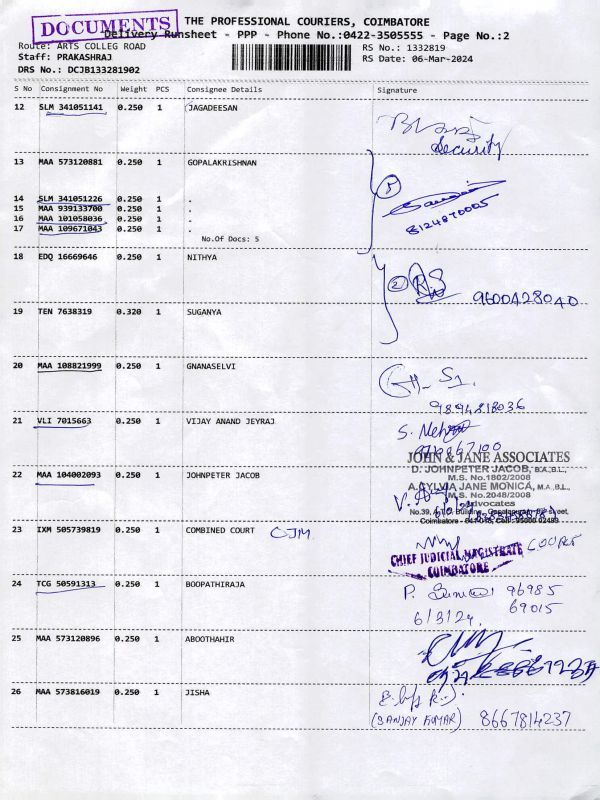 DOCUMENTS
THE PROFESSIONAL COURIERS, COIMBATORE
Delivery Runsheet - PPP - Phone No.:0422-3505555 - Page No.:2
Route: ARTS COLLEG ROAD
RS No.: 1332819
Staff: PRAKASHRAJ
RS Date: 06-Mar-2024
DRS No.: DCJB133281902
S No Consignment No Weight PCS Consignee Details Signature
12 SLM 341051141 0.250 1 JAGADEESAN
Security
13 MAA 573120881 0.250 1 GOPALAKRISHNAN
5
14 SLM 341051226 0.250 1 .
15 MAA 939133700 0.250 1 .
16 MAA 101058036 0.250 1 .
17 MAA 109671043 0.250 1 .
8124870005
No.Of Docs: 5
18 EDQ 16669646 0.250 1 NITHYA
2
9600428040
19 TEN 7638319 0.320 1 SUGANYA
20 MAA 108821999 0.250 1 GNANASELVI
9894818036
21 VLI 7015663 0.250 1 VIJAY ANAND JEYRAJ
JOHN & JANE ASSOCIATES
D. JOHNPETER JACOB, B.A.,B.L.,
M.S. No.1802/2008
22 MAA 104002093 0.250 1 JOHNPETER JACOB
A. SYLVIA JANE MONICA, M.A.,B.L.,
M.S. No.2048/2008
Advocates
Coimbatore
23 IXM 505739819 0.250 1 COMBINED COURT CJM
CHIEF JUDICIAL MAGISTRATE COURT
COIMBATORE
24 TCG 50591313 0.250 1 BOOPATHIRAJA
P. 96985
69015
6/3/24.
25 MAA 573120896 0.250 1 ABOOTHAHIR
26 MAA 573816019 0.250 1 JISHA
(SANJAY KUMAR) 8667814237